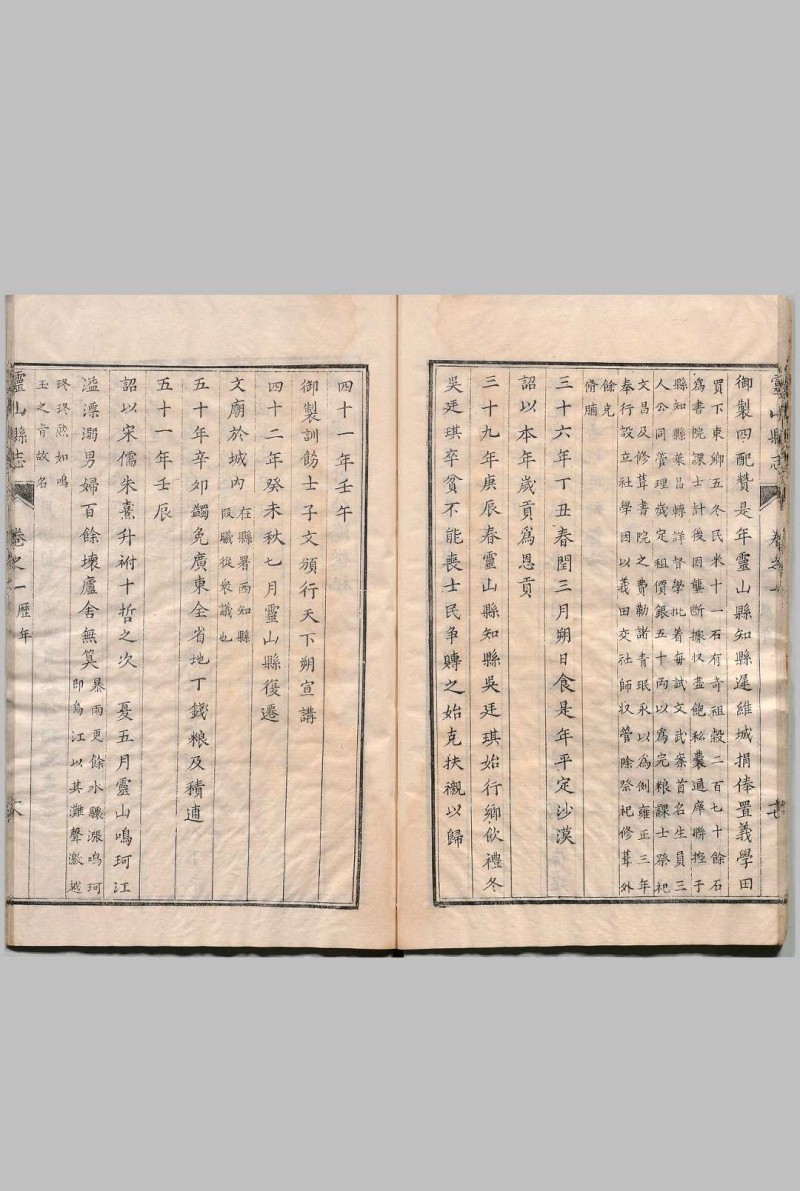 靈山縣志
卷之一
御製四配贊是年靈山縣知縣遲維城捐俸置義學田
買下東鄉五冬民米十一石有奇租穀二百七十餘石
爲書院課士計後因壟斷據収盡飽私囊通庠聯控于
縣知縣葉昌轉詳督學批着每試文武案首名生員三
人公同管理歲定租價銀五十兩以爲完粮課士祭祀
文昌及修葺書院之費勒諸青珉永以爲例雍正三年
奉行設立社學因以義田交社師収管除祭祀修葺外
餘充
脩脯
三十六年丁丑春閏三月朔日食是年平定沙漠
詔以本年歲貢爲恩貢
三十九年庚辰春靈山縣知縣吳廷琪始行鄉飲禮冬
吳廷琪卒貧不能喪士民争賻之始克扶櫬以歸
四十一年壬午
御製訓飭士子文頒行天下朔宣講
四十二年癸未秋七月靈山縣復遷
文廟於城内
在縣署西知縣
段職從衆議也
五十年辛卯蠲免廣東全省地丁錢粮及積逋
五十一年壬辰
詔以宋儒朱熹升祔十哲之次 夏五月靈山鳴珂江
溢漂溺男婦百餘壞廬舍無算
暴雨更餘水驟漲鳴珂
即烏江以其灘聲激越
玲玲然如鳴
玉之音故名
靈山縣志
卷之一歷年